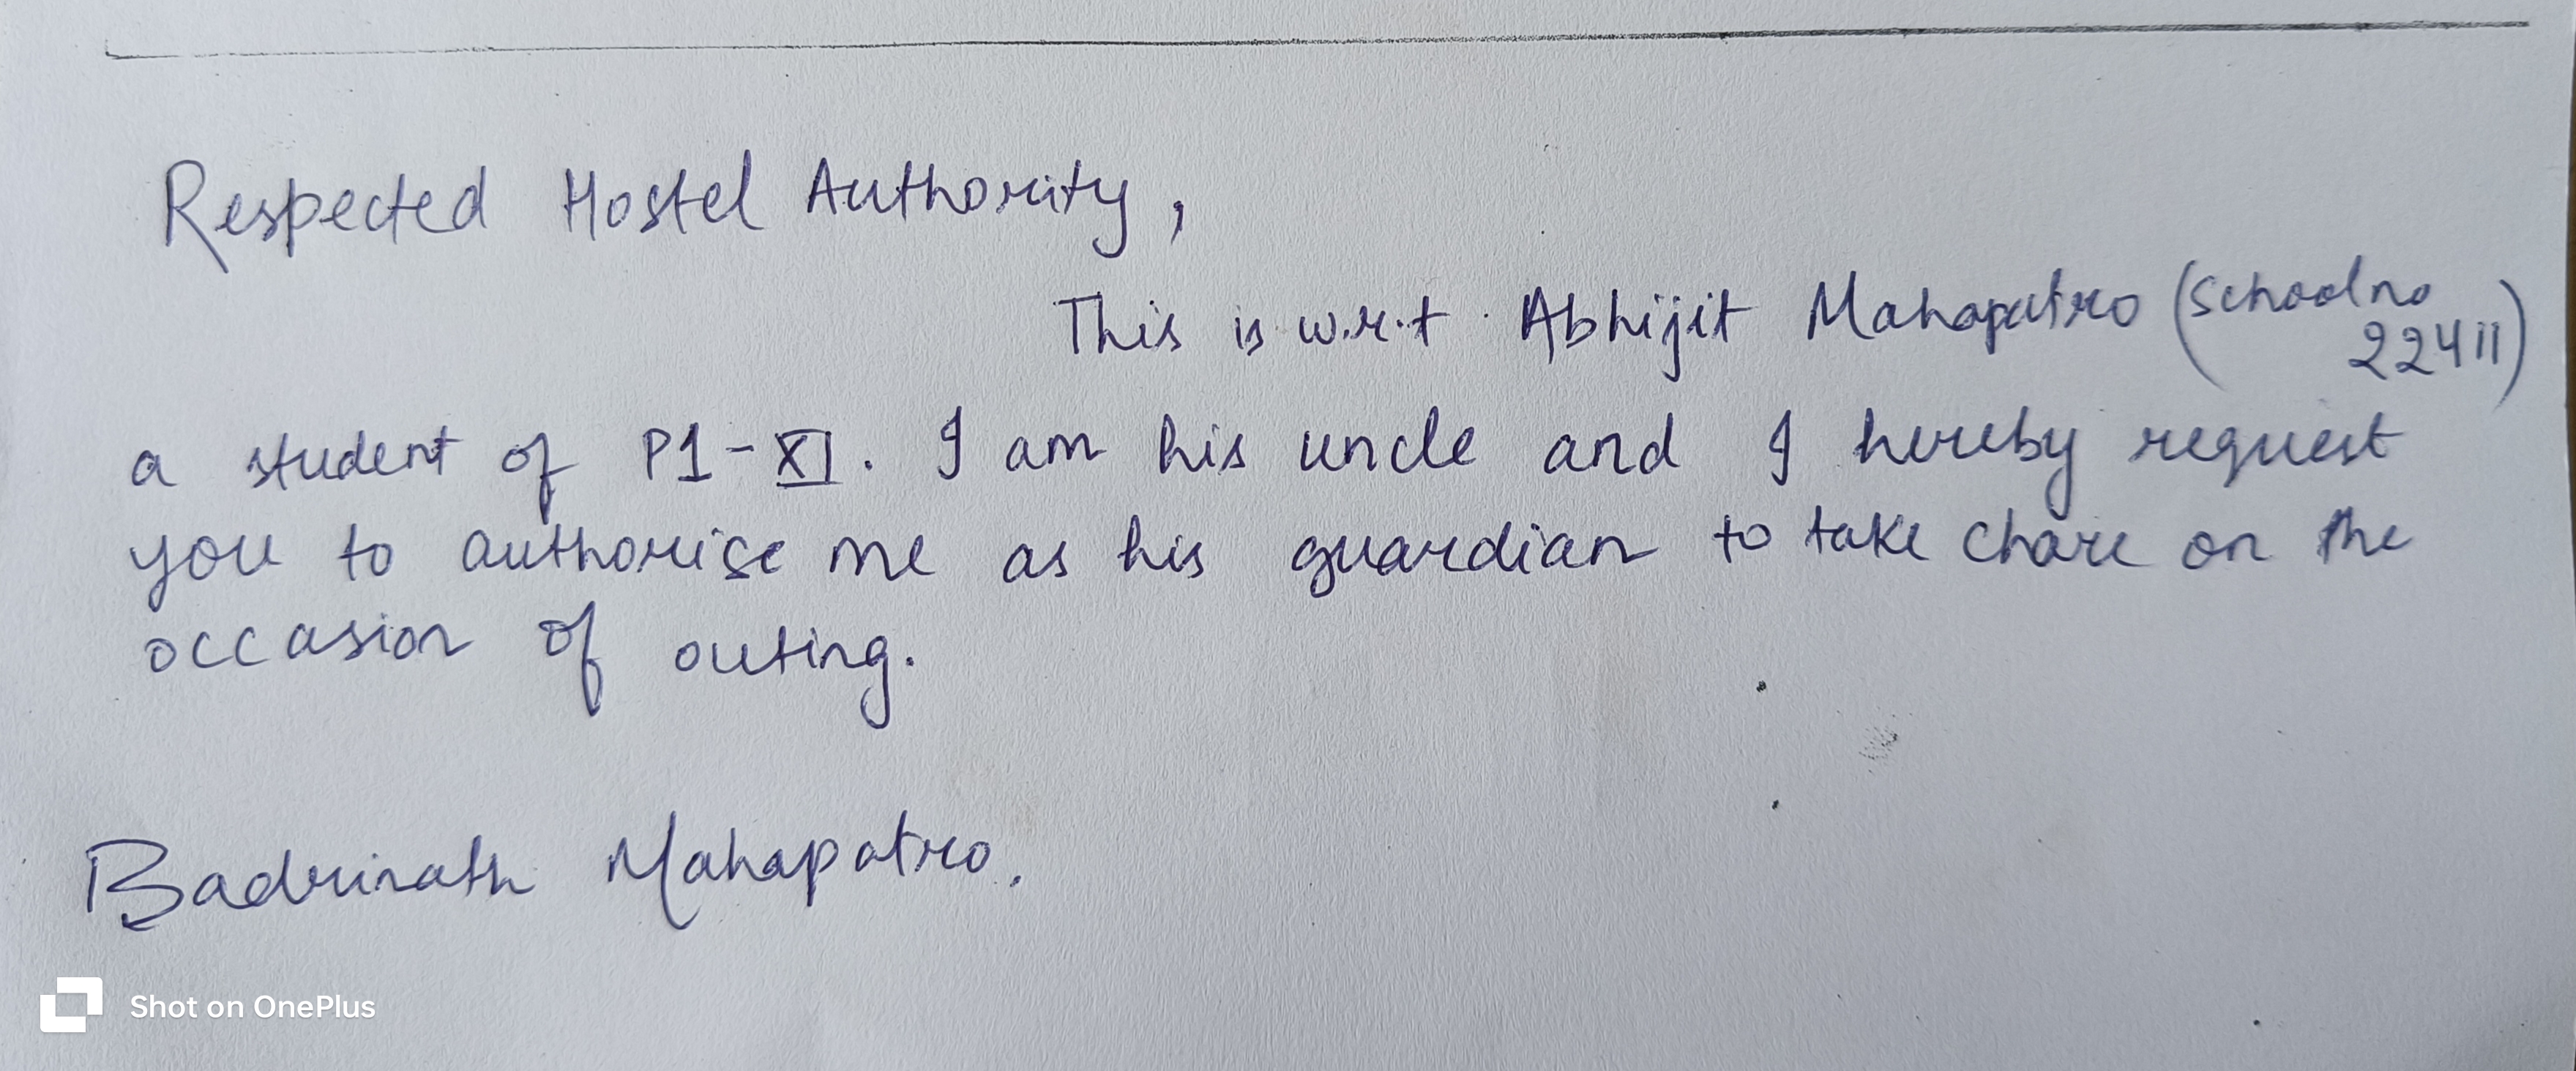 Respected Hostel Authority,
This is w.r.t Abhijit Mahapatro (School no
22411)
a student of P1-XI. I am his uncle and I hereby request
you to authorise me as his guardian to take chare on the
occasion of outing.
Badrinath Mahapatro.
Shot on OnePlus